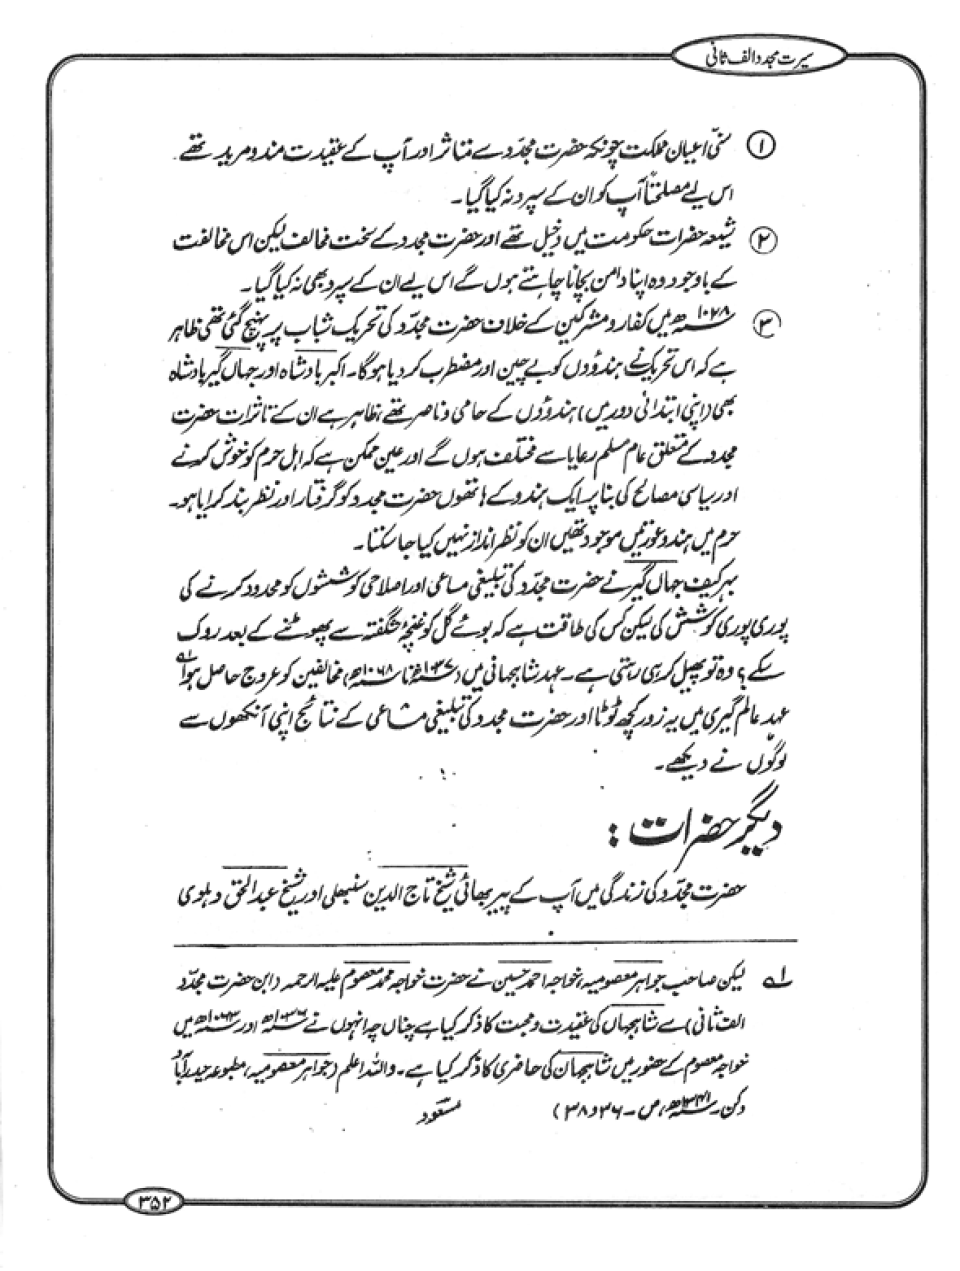 سیرت مجدد الف ثانی
① سنّی اعیان مملکت چونکہ حضرت مجدّد سے متاثر اور آپ کے عقیدت مند و مرید تھے
اس لیے مصلحتاً آپ کو ان کے سپرد نہ کیا گیا۔
② شیعہ حضرات حکومت میں دخیل تھے اور حضرت مجدد کے سخت مخالف لیکن اس مخالفت
کے باوجود وہ اپنا دامن بچانا چاہتے ہوں گے اس لیے ان کے سپرد بھی نہ کیا گیا۔
③ ۱۰۲۸ھ میں کفار و مشرکین کے خلاف حضرت مجدّد کی تحریک شباب پر پہنچ گئی تھی ظاہر
ہے کہ اس تحریک نے ہندوؤں کو بے چین اور مضطرب کر دیا ہوگا۔ اکبر بادشاہ اور جہاں گیر بادشاہ
بھی (اپنی ابتدائی دور میں) ہندوؤں کے حامی و ناصر تھے، ظاہر ہے ان کے تاثرات حضرت
مجدد کے متعلق عام مسلم رعایا سے مختلف ہوں گے اور عین ممکن ہے کہ اہل حرم کو خوش کرنے
اور سیاسی مصالح کی بنا پر ایک ہندو کے ہاتھوں حضرت مجدد کو گرفتار اور نظر بند کرایا ہو۔
حرم میں ہندو عورتیں موجود تھیں ان کو نظر انداز نہیں کیا جا سکتا۔
بہر کیف جہاں گیر نے حضرت مجدّد کی تبلیغی مساعی اور اصلاحی کوششوں کو محدود کرنے کی
پوری پوری کوشش کی لیکن کس کی طاقت ہے کہ بوئے گل کو غنچۂ شگفتہ سے پھوٹنے کے بعد روک
سکے؟ وہ تو پھیل کر ہی رہتی ہے۔ عہد شاہجہانی میں (۱۰۳۷ھ تا ۱۰۶۸ھ) مخالفین کو عروج حاصل ہوا ۱ے
عہد عالم گیری میں یہ زور کچھ ٹوٹا اور حضرت مجدد کی تبلیغی مساعی کے نتائج اپنی آنکھوں سے
لوگوں نے دیکھے۔
دیگر حضرات :
حضرت مجدّد کی زندگی میں آپ کے پیر بھائی شیخ تاج الدین سنبھلی اور شیخ عبدالحق دہلوی
۱ے لیکن صاحب جواہر معصومیہ، خواجہ احمد حسین نے حضرت خواجہ محمد معصوم علیہ الرحمہ (ابن حضرت مجدّد
الف ثانی) سے شاہجہاں کی عقیدت و محبت کا ذکر کیا ہے چناں چہ انہوں نے اور میں
خواجہ معصوم کے حضور میں شاہجہان کی حاضری کا ذکر کیا ہے۔ واللہ اعلم (جواہر معصومیہ، مطبوعہ حیدرآباد
دکن۔ ص۔ ۳۶ و ۳۸)
مسعود
۳۵۲